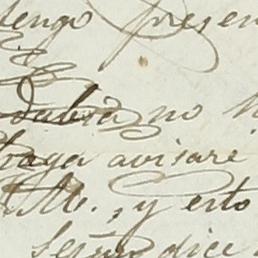 tengo presen
no
haga avisare
y esto
Segun dice